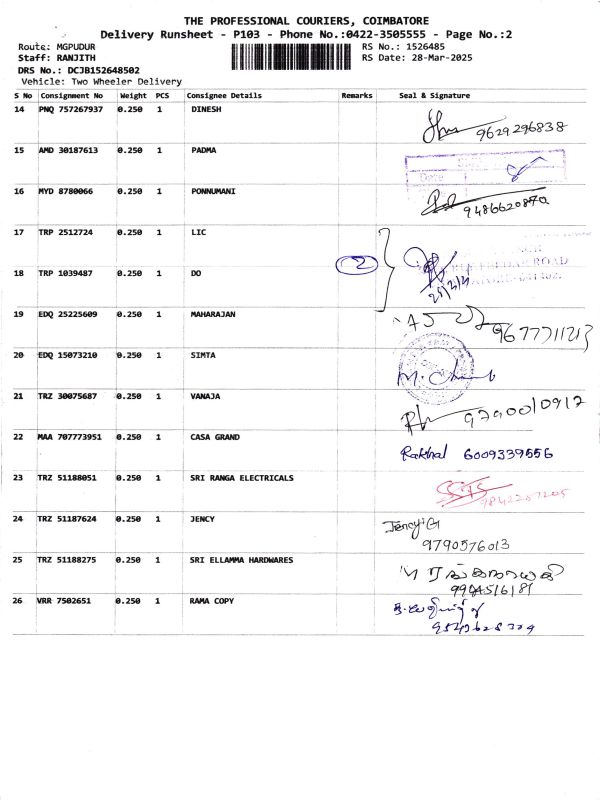 THE PROFESSIONAL COURIERS, COIMBATORE
Delivery Runsheet - P103 - Phone No.:0422-3505555 - Page No.:2
Route: MGPUDUR RS No.: 1526485
Staff: RANJITH RS Date: 28-Mar-2025
DRS No.: DCJB152648502
Vehicle: Two Wheeler Delivery
S No Consignment No Weight PCS Consignee Details Remarks Seal & Signature
14 PNQ 757267937 0.250 1 DINESH
9629296838
15 AMD 30187613 0.250 1 PADMA
Date
16 MYD 8780066 0.250 1 PONNUMANI
9486620870
17 TRP 2512724 0.250 1 LIC
2
18 TRP 1039487 0.250 1 DO
ROAD
19 EDQ 25225609 0.250 1 MAHARAJAN
9677711213
20 EDQ 15073210 0.250 1 SIMTA
21 TRZ 30075687 0.250 1 VANAJA
9790010917
22 MAA 707773951 0.250 1 CASA GRAND
Rakhal 6009339556
23 TRZ 51188051 0.250 1 SRI RANGA ELECTRICALS
9842207205
24 TRZ 51187624 0.250 1 JENCY
Jency G
9790576013
25 TRZ 51188275 0.250 1 SRI ELLAMMA HARDWARES
26 VRR 7502651 0.250 1 RAMA COPY